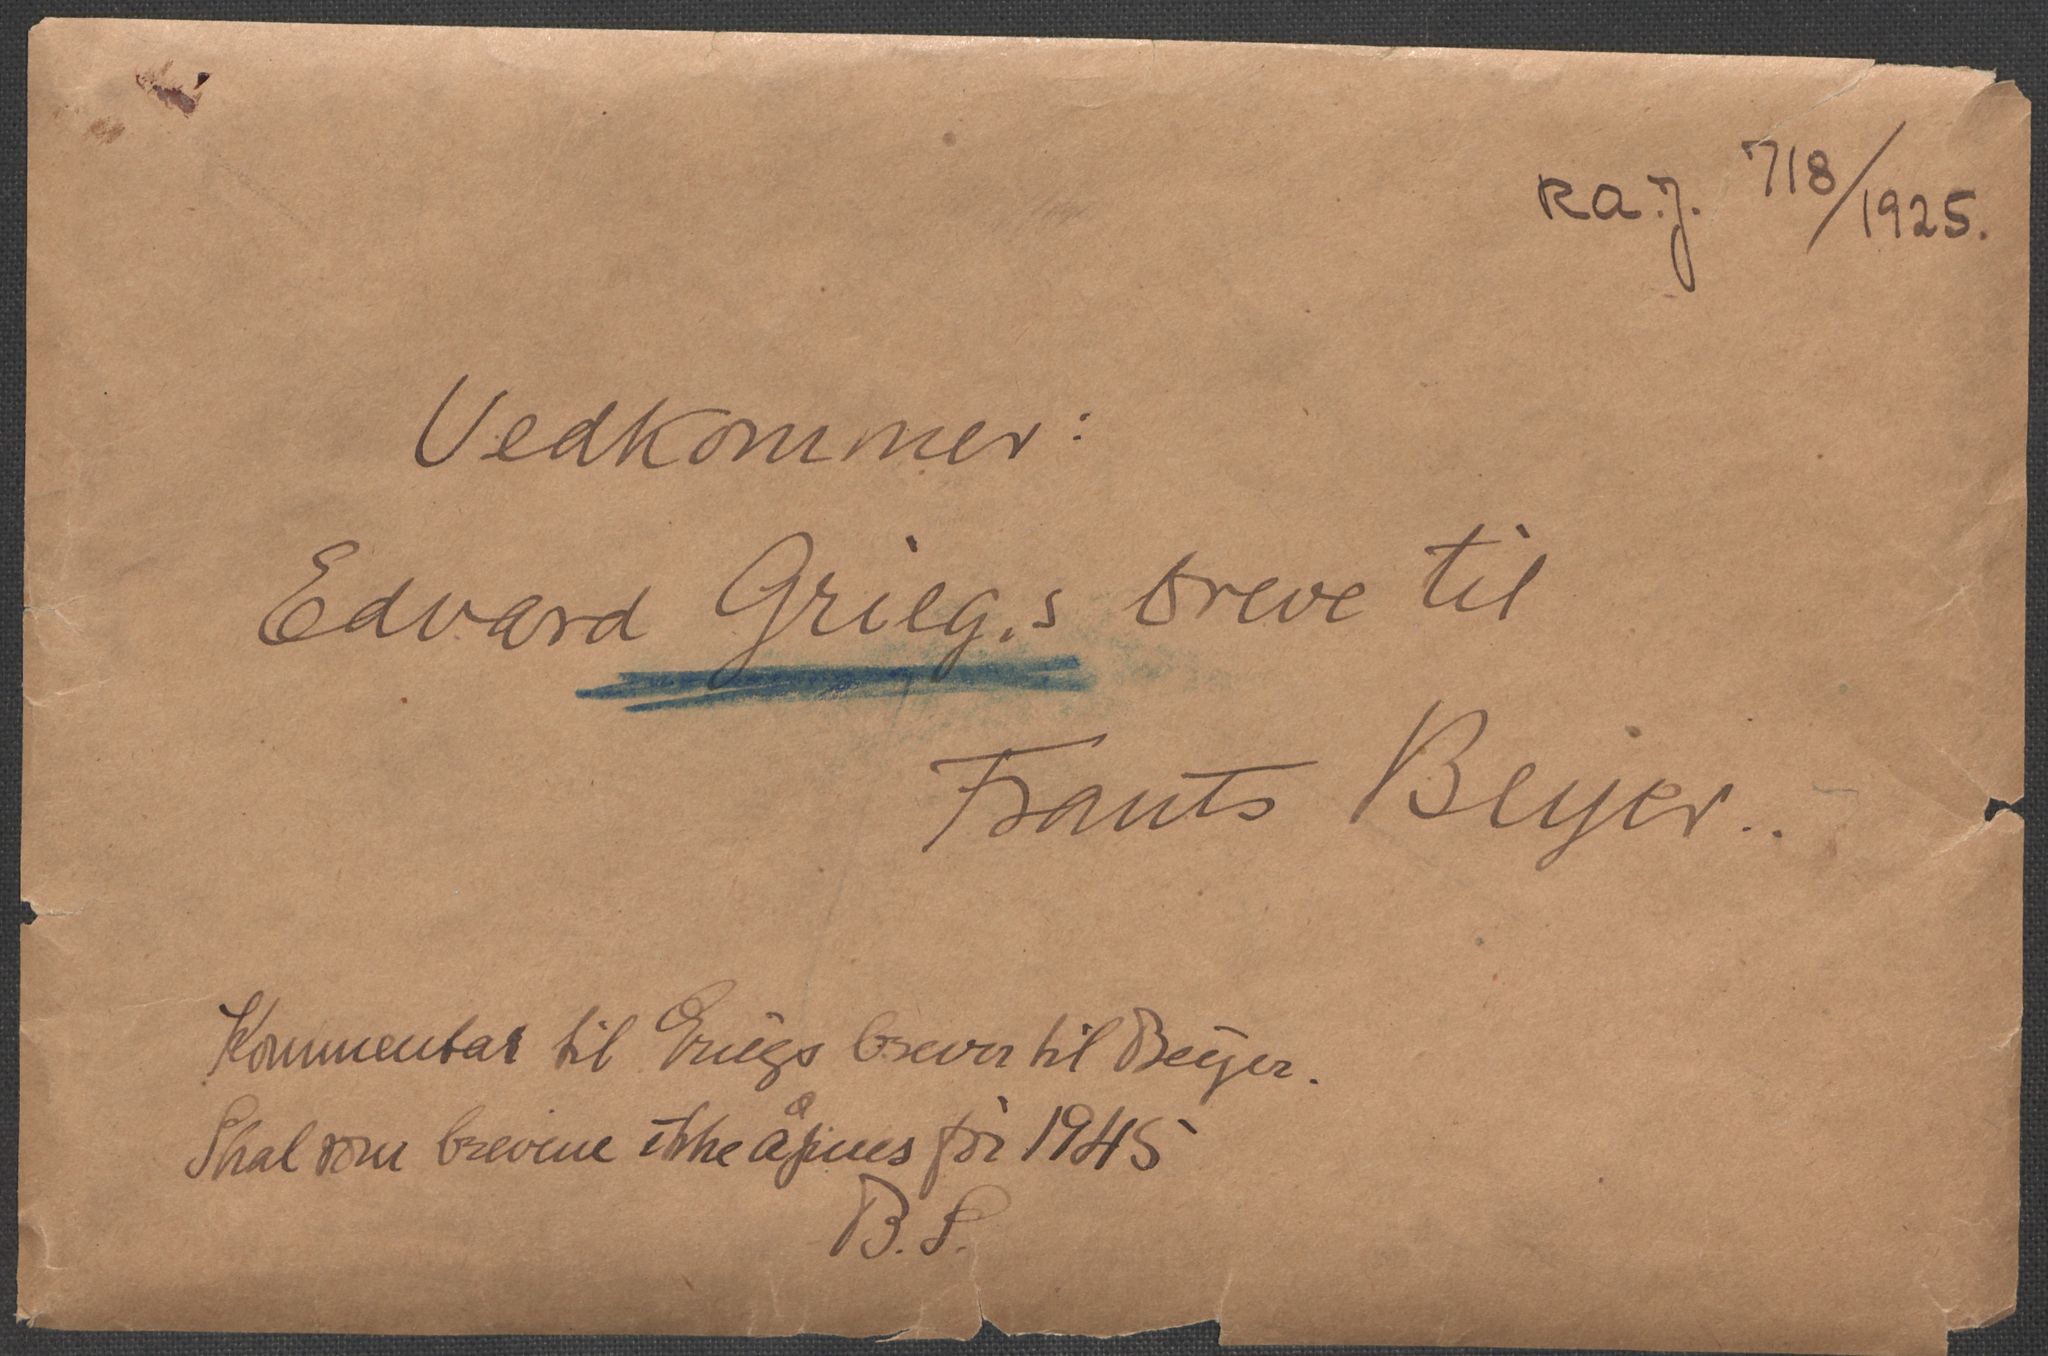 RA. J. 718/1925.
Vedkommer:
Edvard Grieg.s breve til
Frants Beijer..
Kommentar til Griegs brever til Beijer.
Skal som brevene ikke åpnes før 1945
B. S.